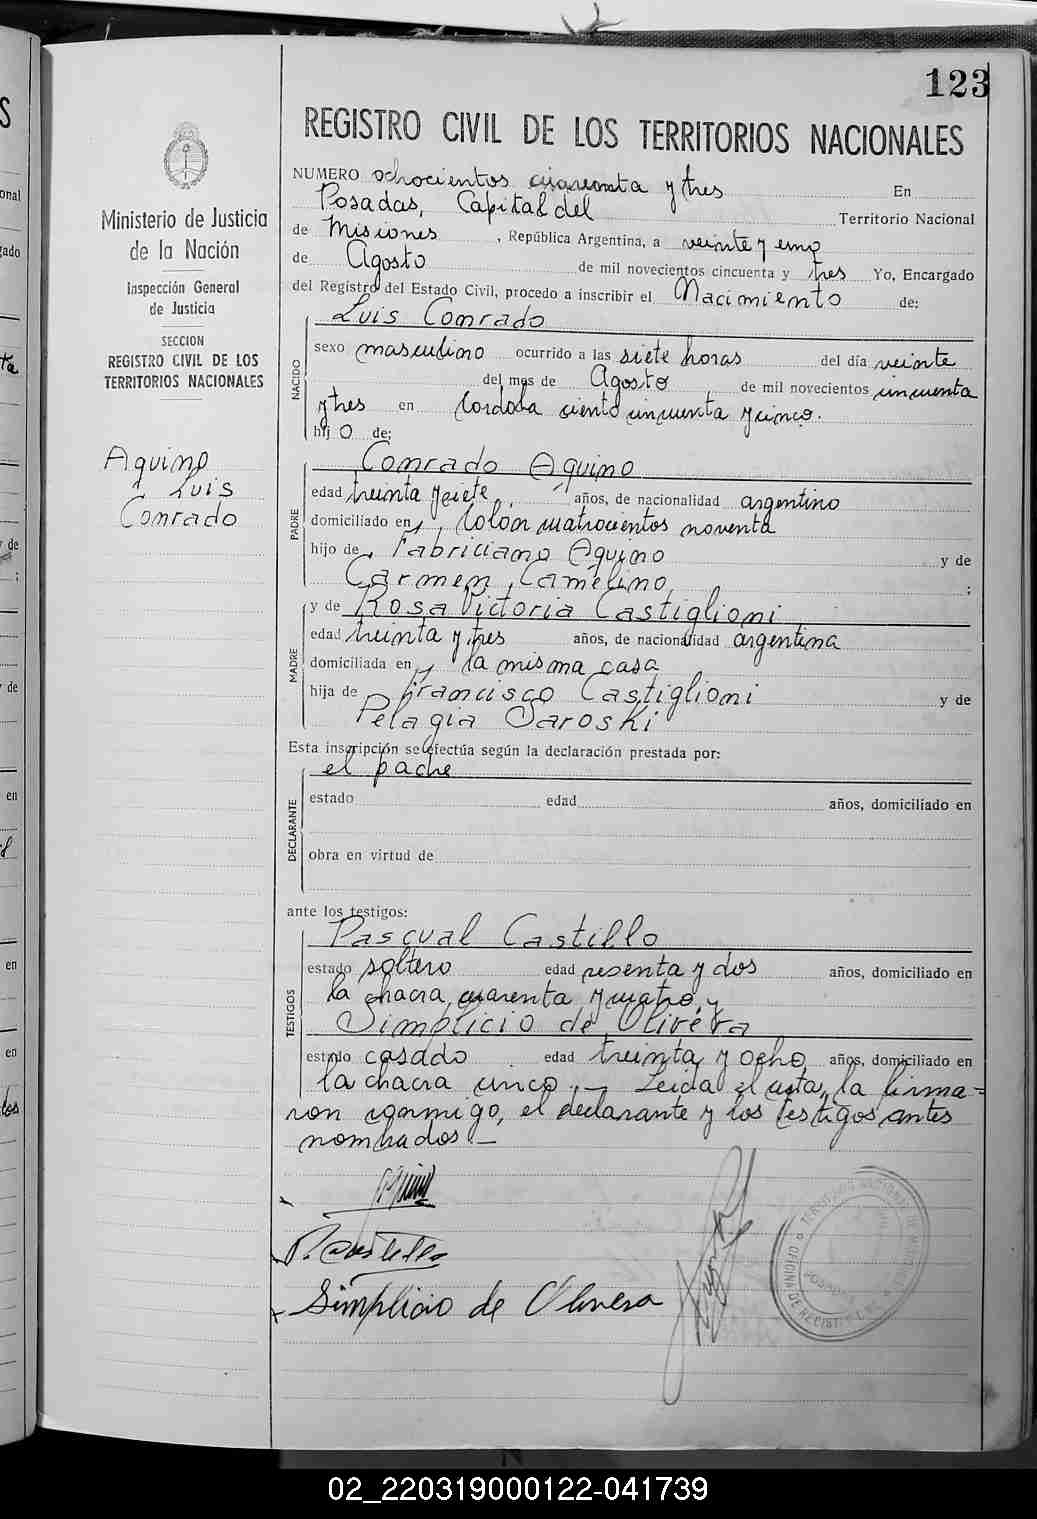 123
REGISTRO CIVIL DE LOS TERRITORIOS NACIONALES
Ministerio de Justicia
de la Nación
Inspección General
de Justicia
SECCION
REGISTRO CIVIL DE LOS
TERRITORIOS NACIONALES
Aquino
Luis
Conrado
NUMERO ochocientos cuarenta y tres En
Posadas, Capital del Territorio Nacional
de Misiones, República Argentina, a veinte y uno
de Agosto de mil novecientos cincuenta y tres Yo, Encargado
del Registro del Estado Civil, procedo a inscribir el Nacimiento de:
Luis Conrado
NACIDO
sexo masculino ocurrido a las siete horas del día veinte
del mes de Agosto de mil novecientos cincuenta
y tres en Córdoba ciento cincuenta y cinco.
hijo de:
Conrado Aquino
PADRE
edad treinta y siete años, de nacionalidad argentino
domiciliado en Colón cuatrocientos noventa
hijo de Fabriciano Aquino y de
Carmen Camelino ;
y de Rosa Victoria Castiglioni
MADRE
edad treinta y tres años, de nacionalidad argentina
domiciliada en la misma casa
hija de Francisco Castiglioni y de
Pelagia Saroski
Esta inscripción se efectúa según la declaración prestada por:
el padre
DECLARANTE
estado edad años, domiciliado en
obra en virtud de
ante los testigos:
Pascual Castillo
TESTIGOS
estado soltero edad sesenta y dos años, domiciliado en
la chacra cuarenta y cuatro, y
Simplicio de Olivera
estado casado edad treinta y ocho años, domiciliado en
la chacra cinco.— Leída el acta, la firma=
ron conmigo, el declarante y los testigos antes
nombrados.—
Simplicio de Olivera
02_220319000122-041739